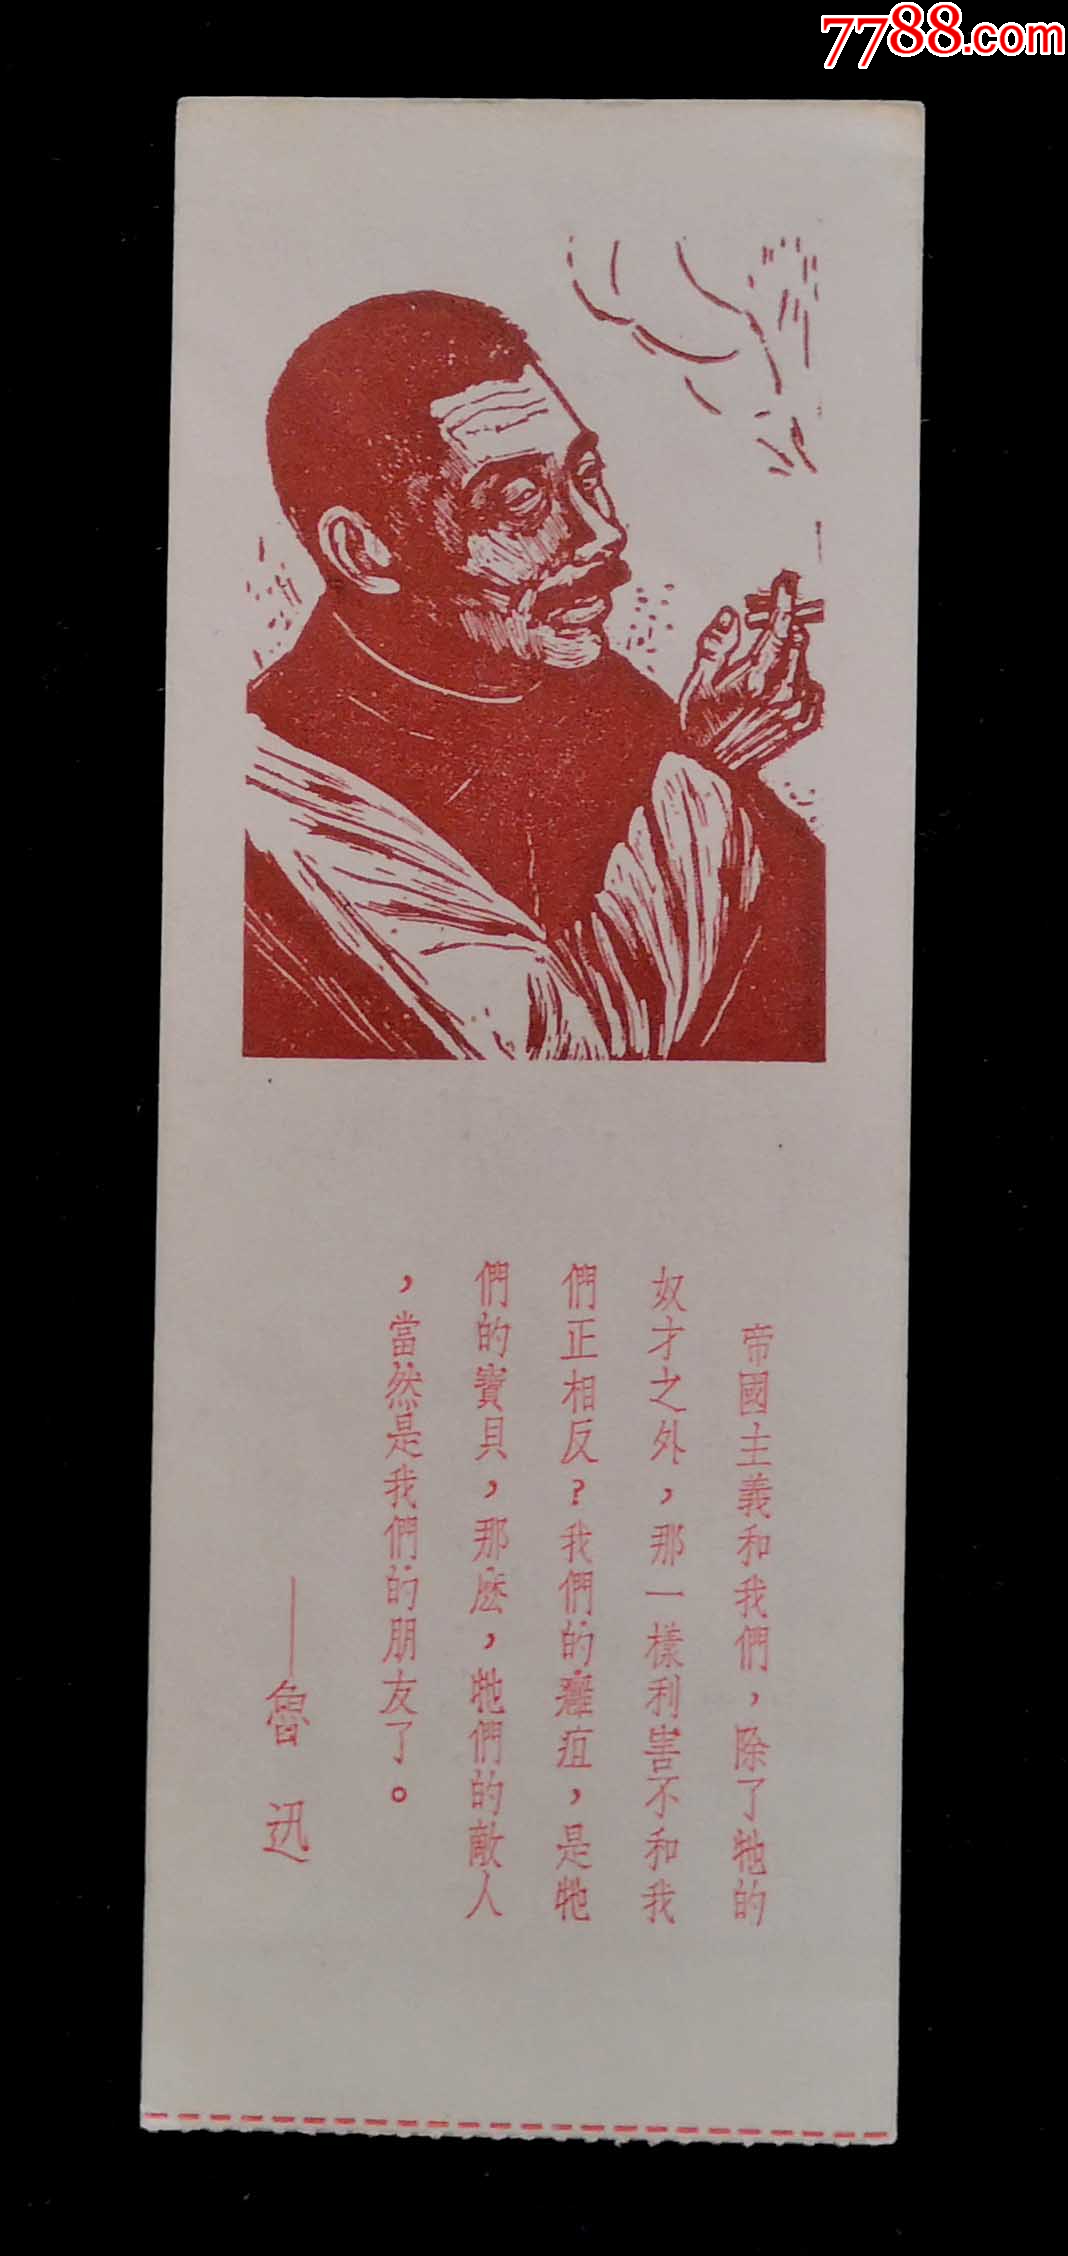 7788.com
帝國主義和我們，除了牠的
奴才之外，那一樣利害不和我
們正相反？我們的癰疽，是牠
們的寶貝，那麽，牠們的敵人
，當然是我們的朋友了。
——魯迅